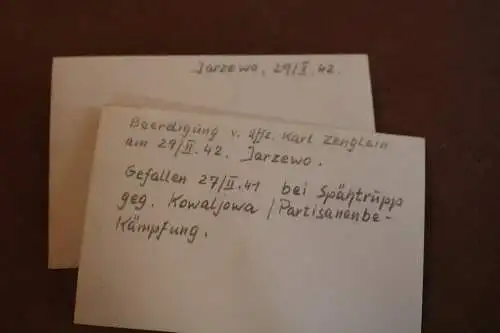 Jarzewo, 29/II. 42.
Beerdigung v. Uffz. Karl Zenglein
am 29/II. 42. Jarzewo.
Gefallen 27/II. 41 bei Spähtrupp
geg. Kowaljowa / Partisanenbe-
Kämpfung.